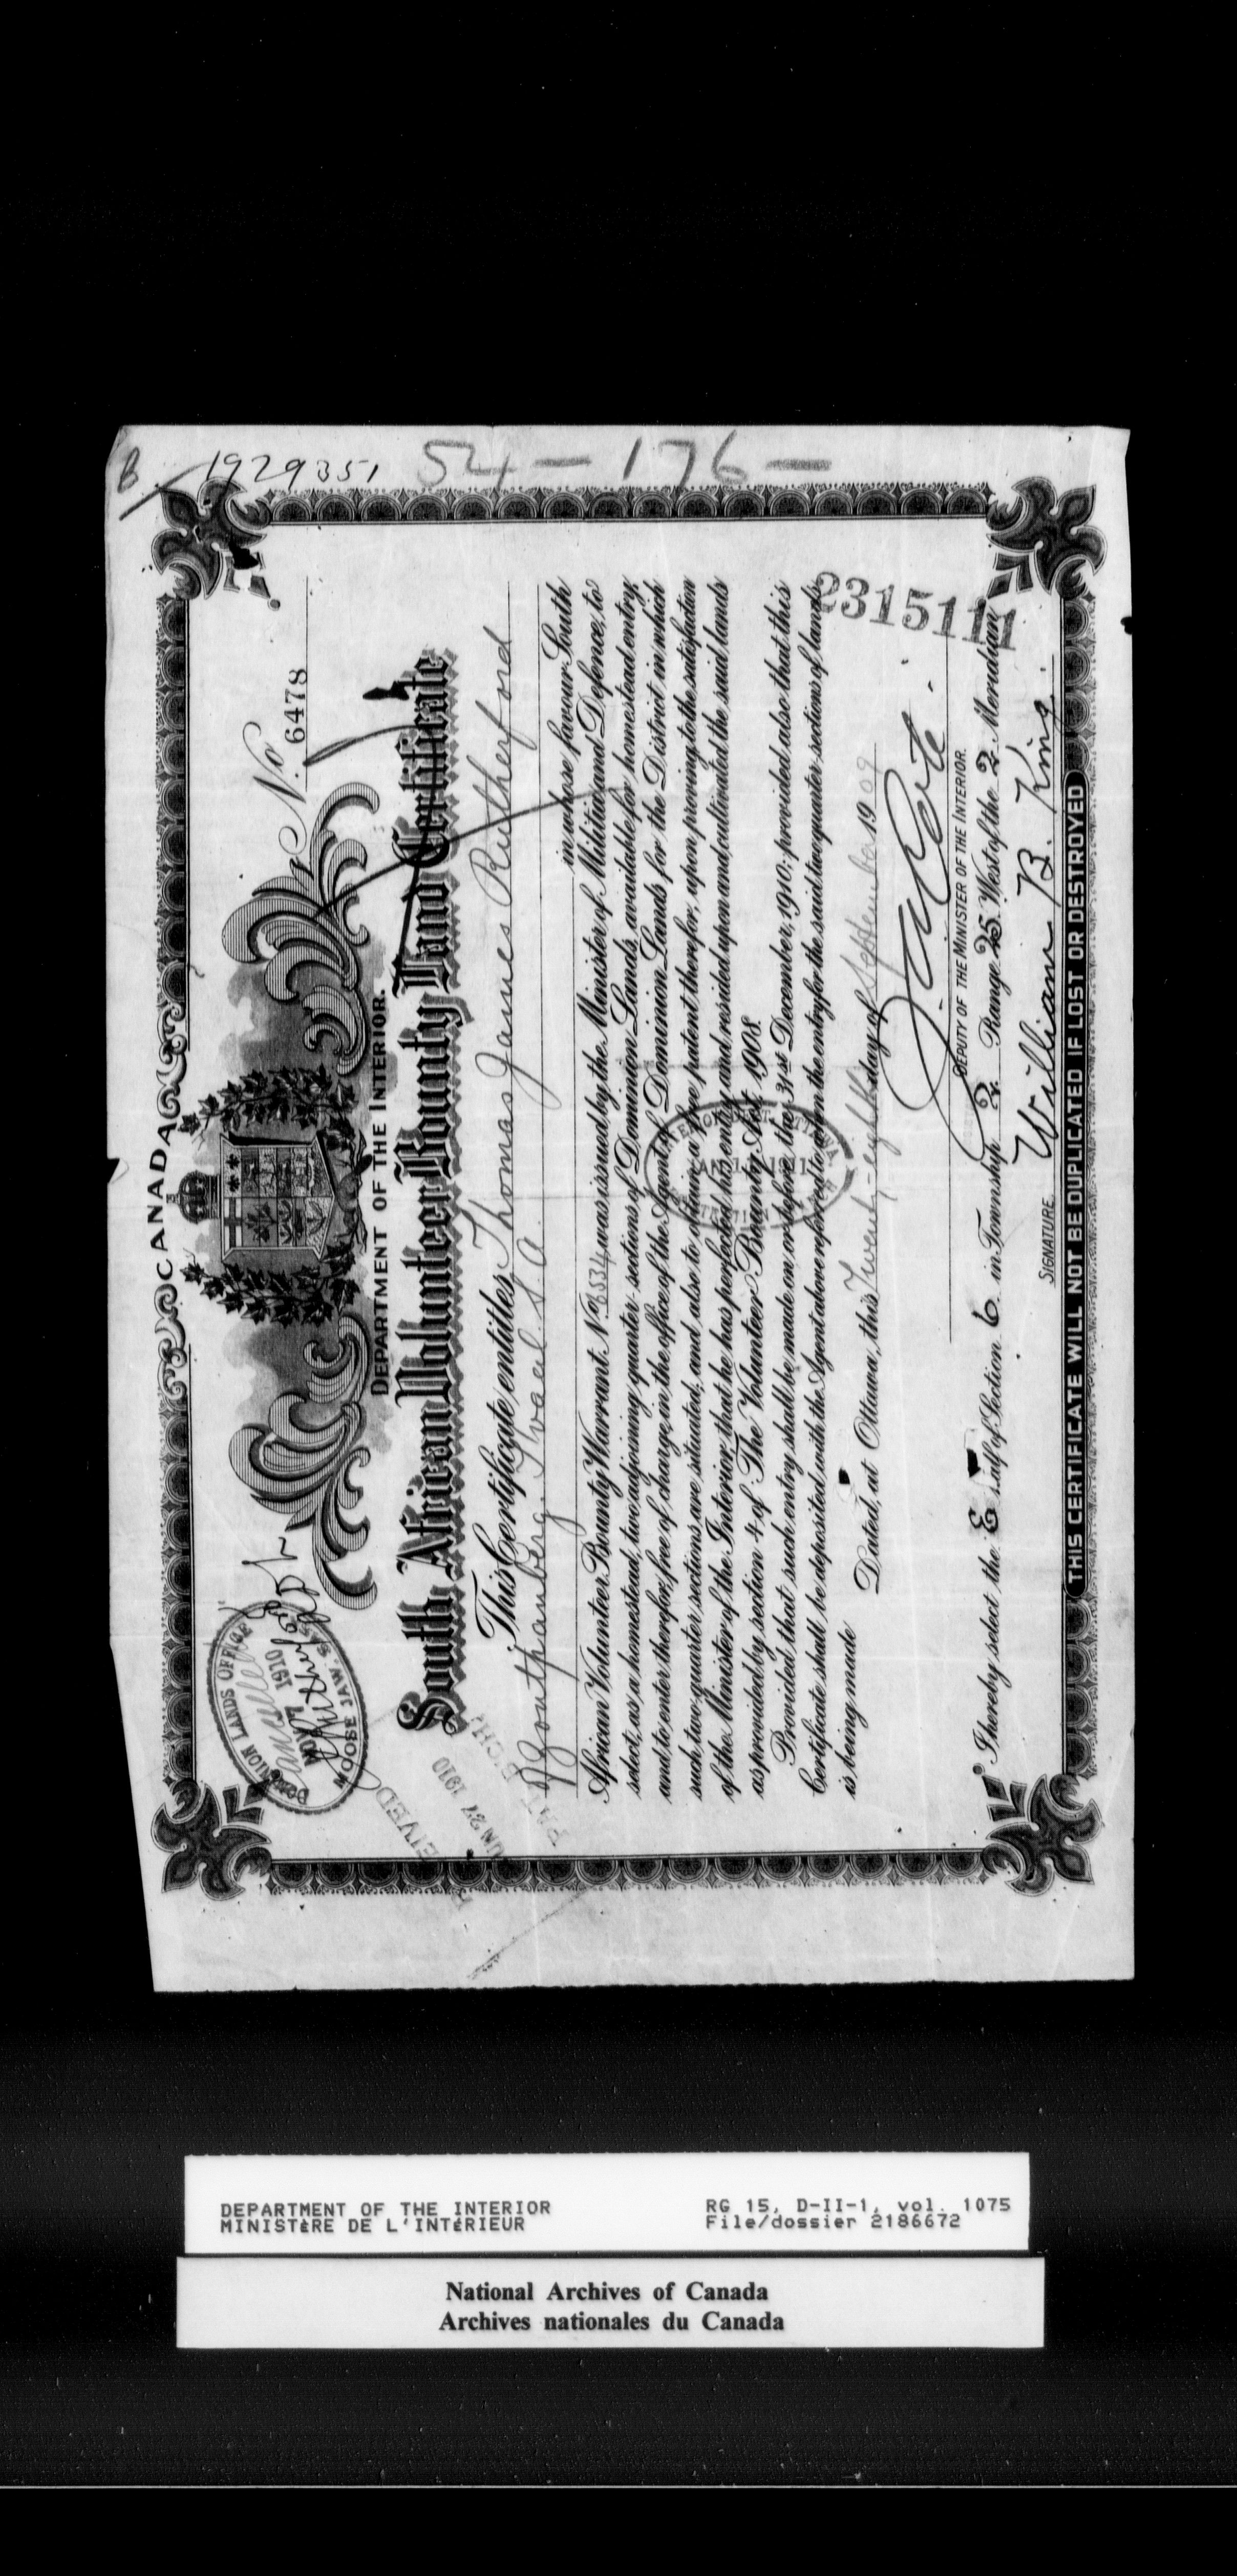 B 1929351
54-176-
CANADA
No. 6478
DOMINION LANDS OFFICE
NOV 7 1910
MOOSE JAW. SASK
DEPARTMENT OF THE INTERIOR.
South African Volunteer Bounty Land Certificate
RECEIVED
JUN 27 1910
This Certificate entitles Thomas James Rutherford
Zoutpansberg. Tvaal S.A.
in whose favour South
African Volunteer Bounty Warrant No. 3534 was issued by the Minister of Militia and Defence, to
select, as a homestead, two adjoining quarter-sections of Dominion Lands, available for homestead entry,
and to enter therefor, free of charge in the office of the Agent of Dominion Lands for the District in which
such two quarter sections are situated, and also to obtain a free patent therefor, upon proving to the satisfaction
of the Minister of the Interior that he has perfected his entry and resided upon and cultivated the said lands
as provided by section 4 of The Volunteer Bounty Act, 1908.
Provided that such entry shall be made on or before the 31st December, 1910; provided also that this
Certificate shall be deposited with the Agent above referred to when the entry for the said two quarter-sections of lands
is being made
2315111
Dated, at Ottawa, this Twenty-eighth day of September 1909
DEPUTY OF THE MINISTER OF THE INTERIOR.
I hereby select the E half of Section 6 in Township 2 Range 25 West of the 2 Meridian
SIGNATURE William B. King.
THIS CERTIFICATE WILL NOT BE DUPLICATED IF LOST OR DESTROYED
DEPARTMENT OF THE INTERIOR RG 15, D-II-1, vol. 1075
MINISTÈRE DE L'INTÉRIEUR File/dossier 2186672
National Archives of Canada
Archives nationales du Canada